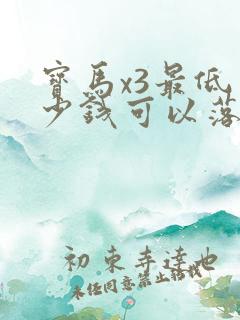 寶馬x3最低
少錢可以落
初東幸達也
未經同意禁止轉載